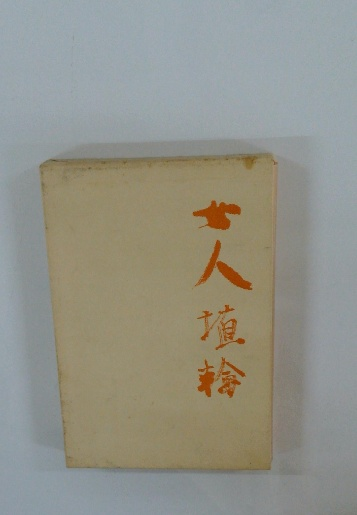 女人埴輪